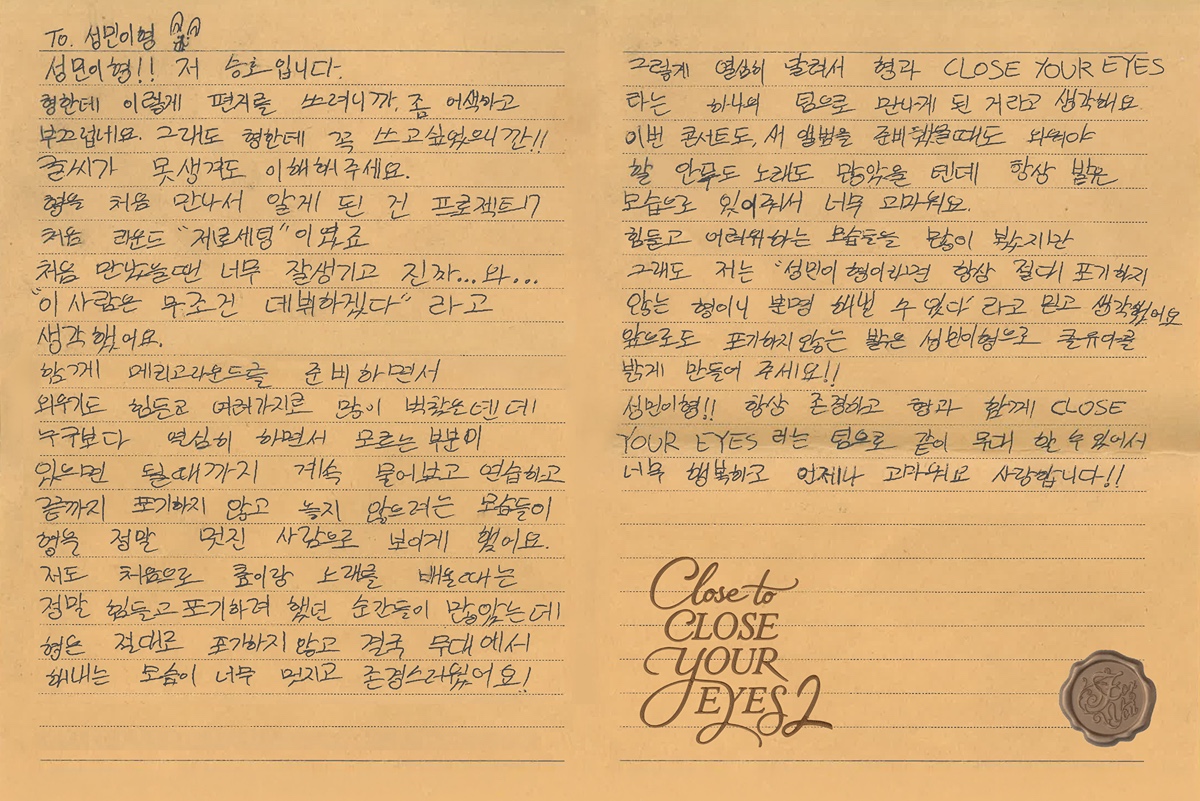 To. 성민이형
성민이형!! 저 승호입니다.
형한테 이렇게 편지를 쓰려니까, 좀 어색하고
부끄럽네요. 그래도 형한테 꼭 쓰고싶었으니깐!!
글씨가 못생겨도 이해해주세요.
형을 처음 만나서 알게 된 건 프로젝트17
처음 라운드 "제로세팅" 이였죠
처음 만났을땐 너무 잘생기고 진짜...와...
"이 사람은 무조건 데뷔하겠다" 라고
생각했어요.
함께 메리고라운드를 준비하면서
외우기도 힘든고 여러가지로 많이 벅찼을텐데
누구보다 열심히 하면서 모르는 부분이
있으면 될때까지 계속 물어보고 연습하고
끝까지 포기하지 않고 놓지 않으려는 모습들이
형을 정말 멋진 사람으로 보이게 했어요.
저도 처음으로 춤이랑 노래를 배울때는
정말 힘들고 포기하려 했던 순간들이 많았는데
형은 절대로 포기하지 않고 결국 무대에서
해내는 모습이 너무 멋지고 존경스러웠어요!
그렇게 열심히 달려서 형과 CLOSE YOUR EYES
라는 하나의 팀으로 만나게 된 거라고 생각해요
이번 콘서트도, 새 앨범을 준비했을때도 외워야
할 안무도 노래도 많았을 텐데 항상 밝은
모습으로 있어줘서 너무 고마워요.
힘들고 어려워하는 모습들을 많이 봤지만
그래도 저는 "성민이 형이라면 항상 절대 포기하지
않는 형이니 분명 해낼 수 있다" 라고 믿고 생각했어요
앞으로도 포기하지않는 밝은 성민이형으로 클유아를
밝게 만들어 주세요!!
성민이형!! 항상 존경하고 형과 함께 CLOSE
YOUR EYES 라는 팀으로 같이 무대 할 수 있어서
너무 행복하고 언제나 고마워요 사랑합니다!!
Close to
CLOSE
YOUR
EYES 2